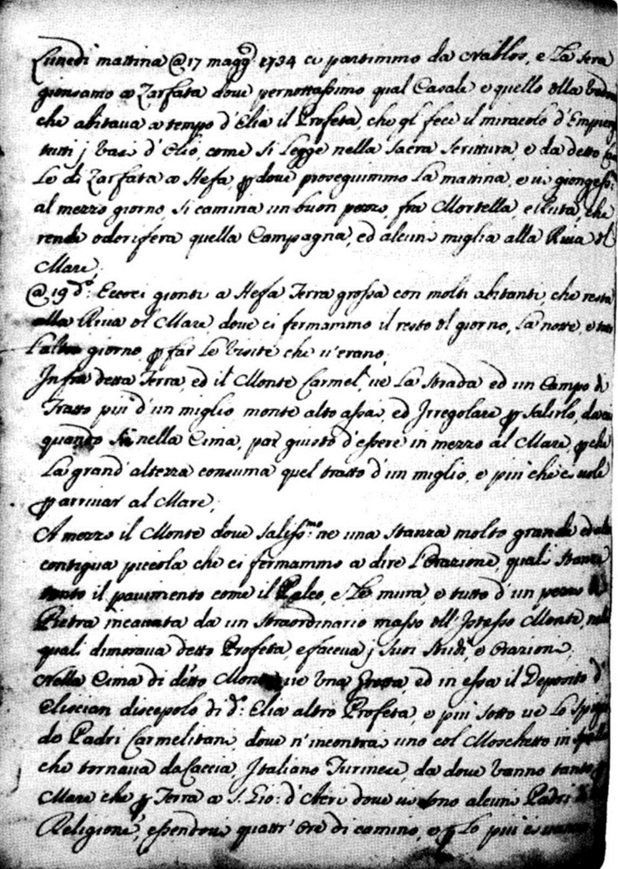 Lunedì mattina @ 17 magg.o 1734 ci partimmo da Nablos, e La sera
giunsamo a Zarfata dove pernottassimo qual Casale e quello della
che abitava a tempo d'Elia il Profeta, che gl' fece il miracolo d'
tutti j Vasi d'Olio, come si Legge nella Sacra Scrittura, e da detto
Le di Zarfata a Hefa, p dove proseguimmo La mattina, e vi
al mezzo giorno, si camina un buon pezzo, fra Mortella e Ruta, che
rende odorifera quella Campagna, ed alcune miglia alla Riva del
Mare.
@ 19 d.o Eccoci gionti a Hefa Terra grossa con molti abitanti, che resta
alla Riva del Mare dove ci fermammo il resto del giorno, La notte, e
l'altro giorno, p far Le Visite che v'erano.
Infra detta Terra, ed il Monte Carmel, ve La Strada ed un Campo di
Tratto piu d'un miglio monte alto assai, ed Irregolare p salirlo,
quando nella Cima, par giusto d'essere in mezzo al Mare, p che
La grand'altezza consuma quel tratto d'un miglio, e piu che
p arrivar al Mare.
A mezzo il Monte dove saliss.mo ne una stanza molto grande ed
contigua piccola che ci fermammo a dire l'Orazione, quali
tanto il pavimento come il Palco, e Le mura, e tutto d'un pezzo
Pietra incavata da un straordinario masso dell'Istesso Monte,
quali dimorava detto Profeta, e faceva j suoi Studi, e Orazione.
Nella Cima di detto Monte ve Una Grotta, ed in essa il Deposito d'
Eliscian discepolo di d.o Elia altro Profeta, e piu sotto ve Lo
de Padri Carmelitani, dove n'incontrai uno col Moschetto in
che tornava da Caccia, Italiano Turinese, da dove vanno tanto p
Mare che p Terra a S. Gio: d'Acri dove vi sono alcuni Padri
Religione, essendovi quattr' Ore di camino, e p Lo piu